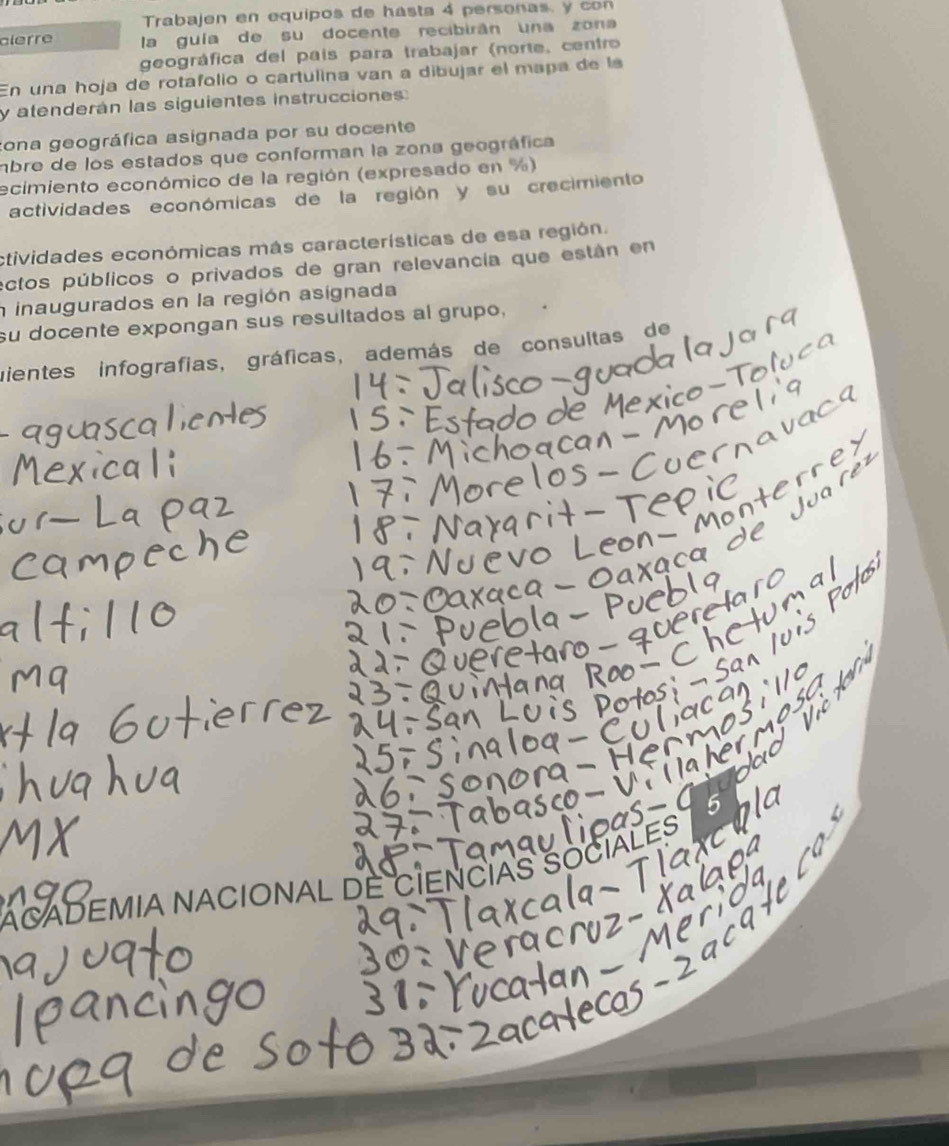 cierre
Trabajen en equipos de hasta 4 personas, y con
la guía de su docente recibirán una zona
geográfica del país para trabajar (norte, centro
En una hoja de rotafolio o cartulina van a dibujar el mapa de la
y atenderán las siguientes instrucciones:
zona geográfica asignada por su docente
mbre de los estados que conforman la zona geográfica
ecimiento económico de la región (expresado en %)
actividades económicas de la región y su crecimiento
ctividades económicas más características de esa región.
ectos públicos o privados de gran relevancia que están en
n inaugurados en la región asignada
su docente expongan sus resultados al grupo,
uientes infografías, gráficas, además de consultas de
- aguascalientes
Mexicali
sur - La paz
campeche
altillo
ma
xtla Gutierrez
ihuahua
MX
ango
najuato
lpancingo
hupa de soto
14: Jalisco - guadalajara
15: Estado de Mexico - Toluca
16: Michoacan - Morelia
17: Morelos - Cuernavaca
18: Nayarit - Tepic
19: Nuevo Leon - Monterrey
20: Oaxaca - Oaxaca de Juarez
21: Puebla - Puebla
22: Queretaro - queretaro
23: Quintana Roo - Chetumal
24: San Luis Potosi - San luis potosi
25: Sinaloa - Culiacan
26: Sonora - Hermosillo
27: Tabasco - Villahermosa
28: Tamaulipas - Ciudad Victoria
29: Tlaxcala - Tlaxcala
30: Veracruz - Xalapa
31: Yucatan - Merida
32: Zacatecas - Zacatecas
ACADEMIA NACIONAL DE CIENCIAS SOCIALES 5